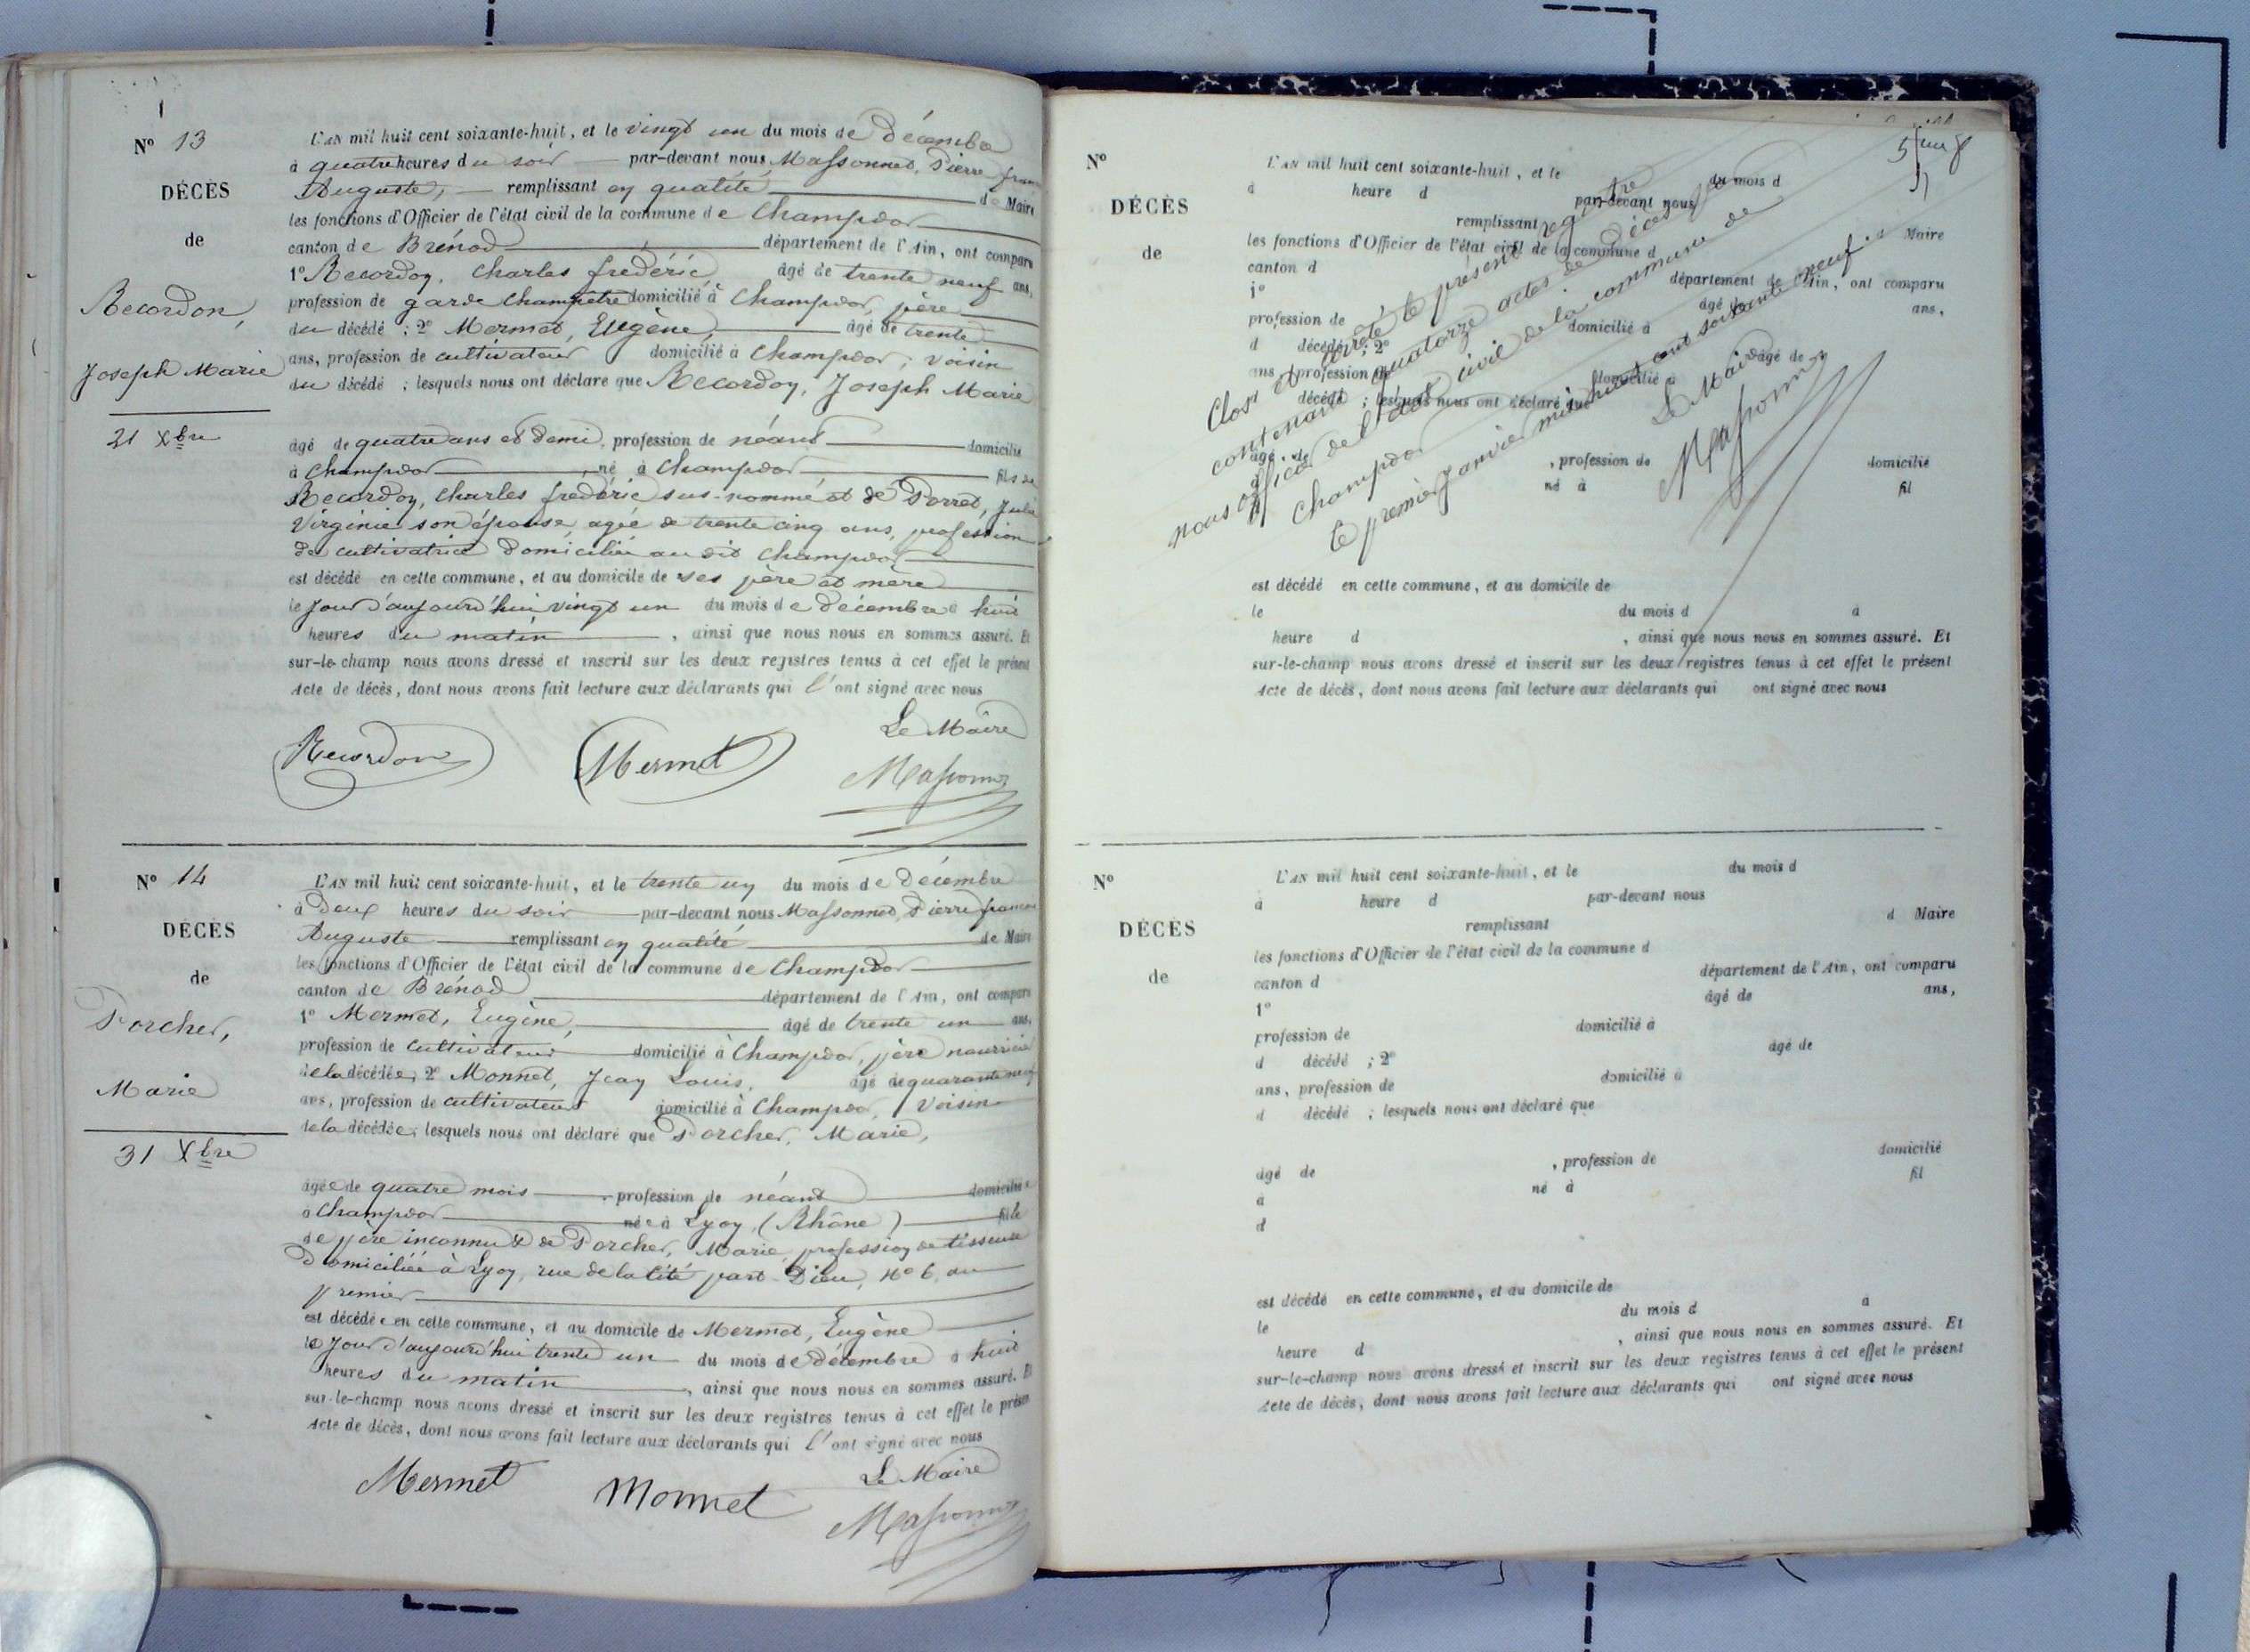 N° 13
DÉCÈS
de
Recordon,
Joseph Marie
21 Xbre
L'AN mil huit cent soixante-huit, et le vingt un du mois de Décembre
à quatre heures du soir par-devant nous Massonnet, Pierre
Auguste, remplissant en qualité de Maire
les fonctions d'Officier de l'état civil de la commune de Champdor
canton de Brénod département de l'Ain, ont comparu
1° Recordon, Charles frédéric, âgé de trente neuf ans,
profession de garde champêtre domicilié à Champdor, père
du décédé ; 2° Mermet, Eugène, âgé de trente
ans, profession de cultivateur domicilié à Champdor, voisin
du décédé ; lesquels nous ont déclaré que Recordon, Joseph Marie
âgé de quatre ans et demi, profession de néant domicilié
à Champdor né à Champdor fils de
Recordon, Charles frédéric sus-nommé et de Porret, Julie
Virginie son épouse, agée de trente cinq ans, profession
de cultivatrice domiciliée au dit Champdor
est décédé en cette commune, et au domicile de ses père et mère
le jour d'aujourd'hui vingt un du mois de décembre à huit
heures du matin, ainsi que nous nous en sommes assuré. Et
sur-le-champ nous avons dressé et inscrit sur les deux registres tenus à cet effet le présent
Acte de décès, dont nous avons fait lecture aux déclarants qui l'ont signé avec nous
Le Maire
Recordon Mermet Massonnet
N° 14
DÉCÈS
de
Porcher,
Marie
31 Xbre
L'AN mil huit cent soixante-huit, et le trente un du mois de Décembre
à Deux heures du soir par-devant nous Massonnet, Pierre françois
Auguste remplissant en qualité de Maire
les fonctions d'Officier de l'état civil de la commune de Champdor
canton de Brénod département de l'Ain, ont comparu
1° Mermet, Eugène, âgé de trente un ans,
profession de cultivateur domicilié à Champdor, père nourricier
de la décédée; 2° Monnet, Jean Louis, âgé de quarante neuf
ans, profession de cultivateur domicilié à Champdor, Voisin
de la décédée; lesquels nous ont déclaré que Porcher, Marie,
âgée de quatre mois profession de néant domiciliée
à Champdor née à Lyon, (Rhône) fille
de père inconnu & de Porcher, Marie, profession de tisseuse
Domiciliée à Lyon, rue de la Cité part-Dieu, N° 6, au
premier
est décédée en cette commune, et au domicile de Mermet, Eugène
le jour d'aujourd'hui trente un du mois de Décembre à huit
heures du matin, ainsi que nous nous en sommes assuré. Et
sur-le-champ nous avons dressé et inscrit sur les deux registres tenus à cet effet le présent
Acte de décès, dont nous avons fait lecture aux déclarants qui l'ont signé avec nous
Le Maire
Mermet Monnet Massonnet
N°
DÉCÈS
de
L'AN mil huit cent soixante-huit, et le du mois d
à heure d par-devant nous
remplissant d Maire
les fonctions d'Officier de l'état civil de la commune d
canton d département de l'Ain, ont comparu
1° âgé de ans,
profession de domicilié à
d décédé ; 2° âgé de
ans, profession de domicilié à
d décédé ; lesquels nous ont déclaré que
âgé de , profession de domicilié
à né à fil
d
Clos et arrêté le présent registre
contenant quatorze actes de décès par
nous officier de l'état civil de la commune de
Champdor
le premier janvier mil huit cent soixante neuf
Le Maire
Massonnet
est décédé en cette commune, et au domicile de
le du mois d à
heure d , ainsi que nous nous en sommes assuré. Et
sur-le-champ nous avons dressé et inscrit sur les deux registres tenus à cet effet le présent
Acte de décès, dont nous avons fait lecture aux déclarants qui ont signé avec nous
N°
DÉCÈS
de
L'AN mil huit cent soixante-huit, et le du mois d
à heure d par-devant nous
remplissant d Maire
les fonctions d'Officier de l'état civil de la commune d
canton d département de l'Ain, ont comparu
1° âgé de ans,
profession de domicilié à
d décédé ; 2° âgé de
ans, profession de domicilié à
d décédé ; lesquels nous ont déclaré que
âgé de , profession de domicilié
à né à fil
d
est décédé en cette commune, et au domicile de
le du mois d à
heure d , ainsi que nous nous en sommes assuré. Et
sur-le-champ nous avons dressé et inscrit sur les deux registres tenus à cet effet le présent
Acte de décès, dont nous avons fait lecture aux déclarants qui ont signé avec nous